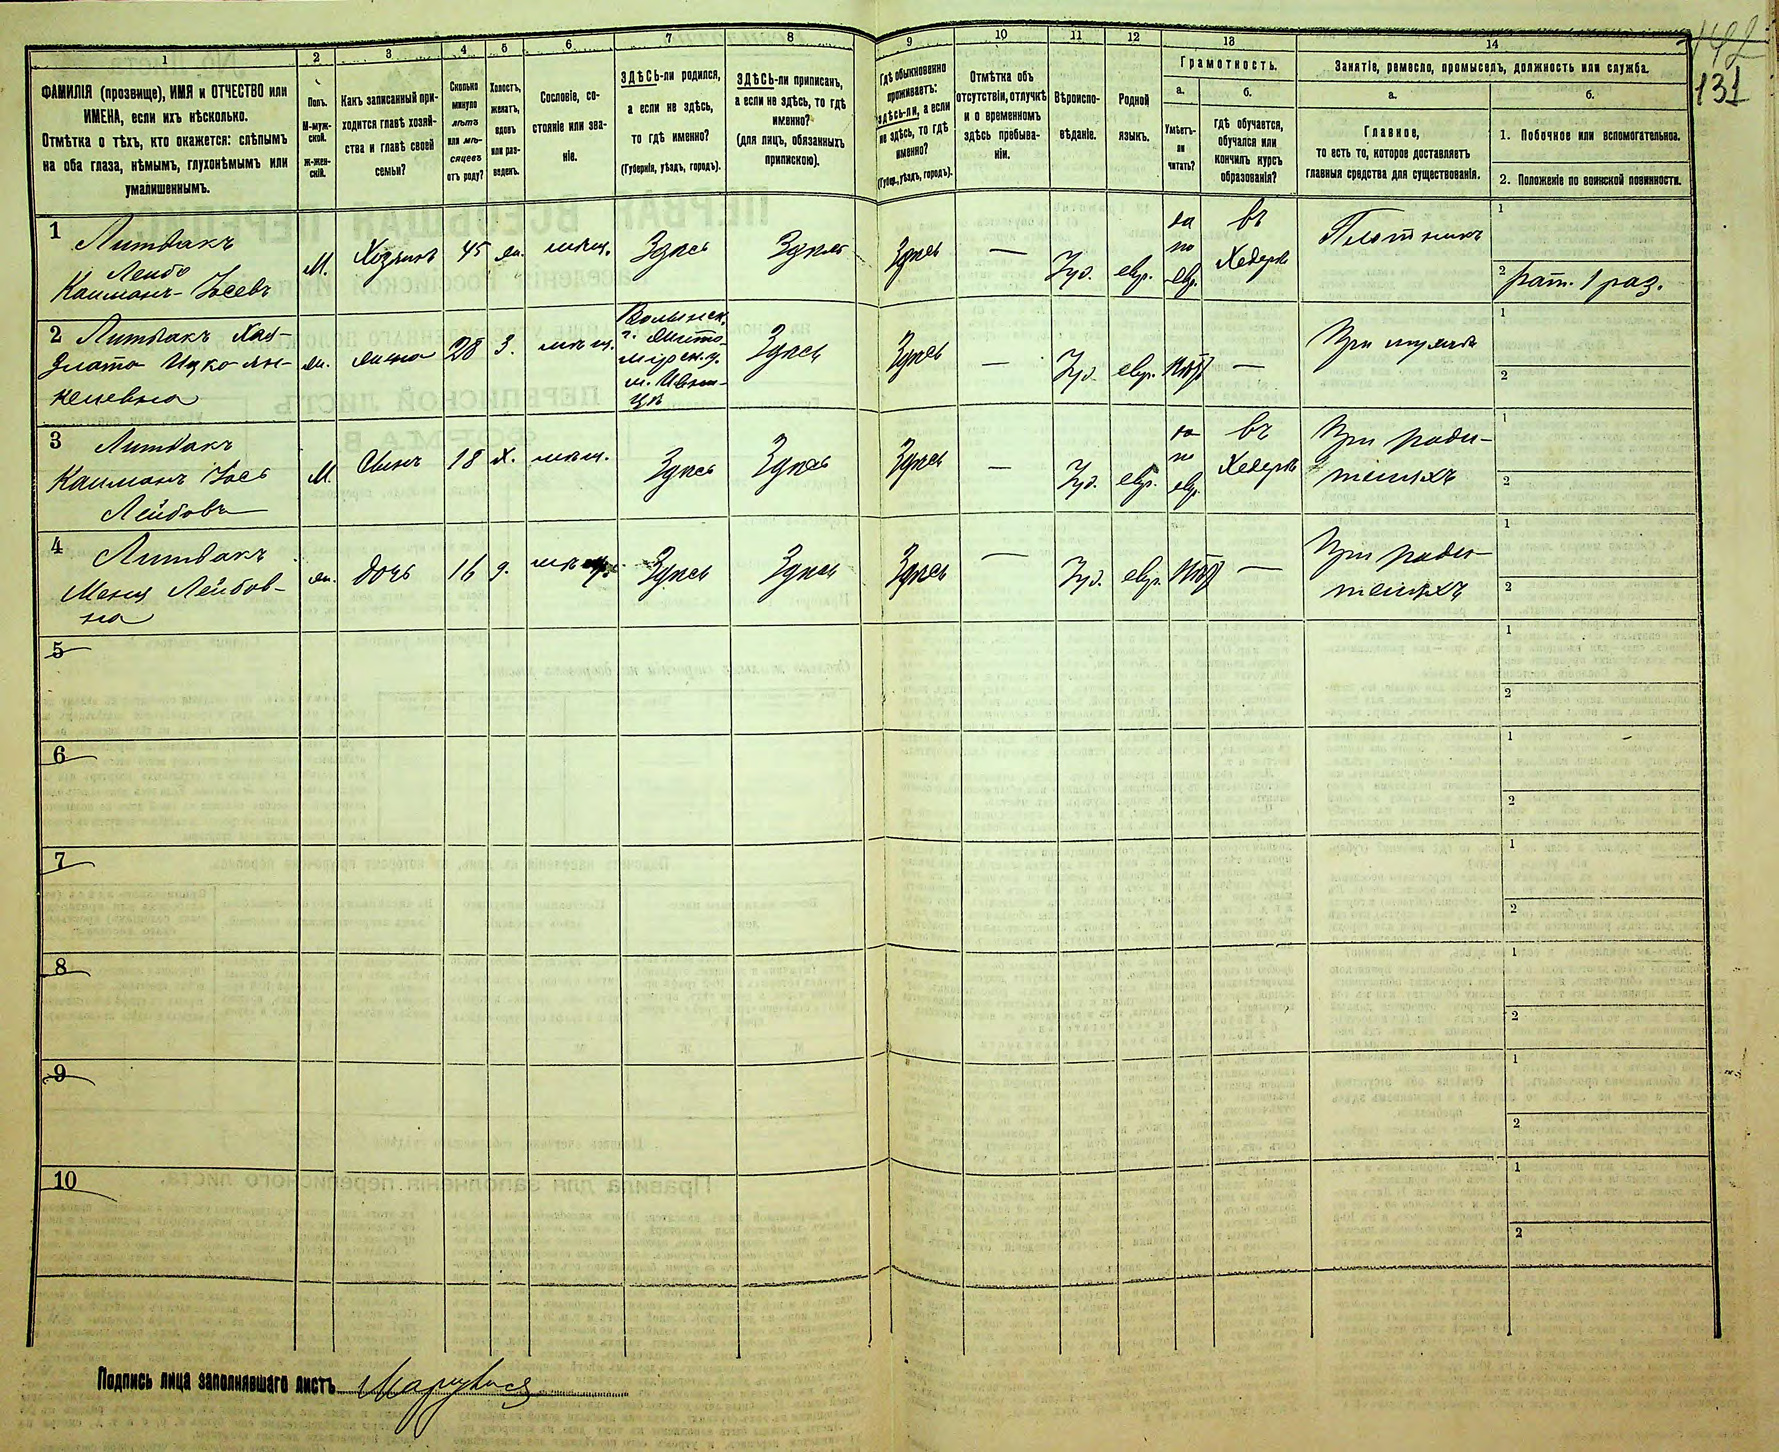 1492
131
1
2
3
4
5
6
7
8
9
10
11
12
13
14
ФАМИЛІЯ (прозвище), ИМЯ и ОТЧЕСТВО или
ИМЕНА, если ихъ нѣсколько.
Отмѣтка о тѣхъ, кто окажется: слѣпымъ
на оба глаза, нѣмымъ, глухонѣмымъ или
умалишеннымъ.
Полъ.
М-муж-
ской.
Ж-жен-
скій.
Какъ записанный при-
ходится главѣ хозяй-
ства и главѣ своей
семьи?
Сколько
минуло
лѣтъ
или мѣ-
сяцевъ
отъ роду?
Холостъ,
женатъ,
вдовъ
или раз-
веденъ.
Сословіе, со-
стояніе или зва-
ніе.
ЗДѢСЬ-ли родился,
а если не здѣсь,
то гдѣ именно?
(Губернія, уѣздъ, городъ).
ЗДѢСЬ-ли приписанъ,
а если не здѣсь, то гдѣ
именно?
(для лицъ, обязанныхъ
припискою).
Гдѣ обыкновенно
проживаетъ:
здѣсь-ли, а если
не здѣсь, то гдѣ
именно?
(Губер., уѣздъ, городъ).
Отмѣтка объ
отсутствіи, отлучкѣ
и о временномъ
здѣсь пребыва-
ніи.
Вѣроиспо-
вѣданіе.
Родной
языкъ.
Грамотность.
а.
Умѣетъ-
ли
читать?
б.
Гдѣ обучается,
обучался или
кончилъ курсъ
образованія?
Занятіе, ремесло, промыселъ, должность или служба.
а.
Главное,
то есть то, которое доставляетъ
главныя средства для существованія.
б.
1. Побочное или вспомогательное.
2. Положеніе по воинской повинности.
1
Литвакъ
Лейбо
Кальманъ-Іосевъ
М.
Хозяинъ
45
ж.
мѣщ.
Здѣсь
Здѣсь
Здѣсь
—
Іуд.
евр.
да
по
евр.
въ
Хедерѣ
Плотникъ
1
2 рат. 1 раз.
2 Литвакъ Хая-
Злата Ицко-Ян-
келевна
ж.
жена
28
З.
мѣщ.
Волынск.
г. Жито-
мірск. у.
м. Ивни-
цѣ
Здѣсь
Здѣсь
—
Іуд.
евр.
нѣт
—
При мужѣ
1
2
3
Литвакъ
Кальманъ Іось
Лейбовъ
М.
Сынъ
18
х.
мѣщ.
Здѣсь
Здѣсь
Здѣсь
—
Іуд.
евр.
да
по
евр.
въ
Хедерѣ
При роди-
теляхъ
1
2
4
Литвакъ
Меня Лейбов-
на
ж.
дочь
16
д.
мѣщ.
Здѣсь
Здѣсь
Здѣсь
—
Іуд.
евр.
нѣт
—
При роди-
теляхъ
1
2
5
1
2
6
1
2
7
1
2
8
1
2
9
1
2
10
1
2
Подпись лица заполнявшаго листъ